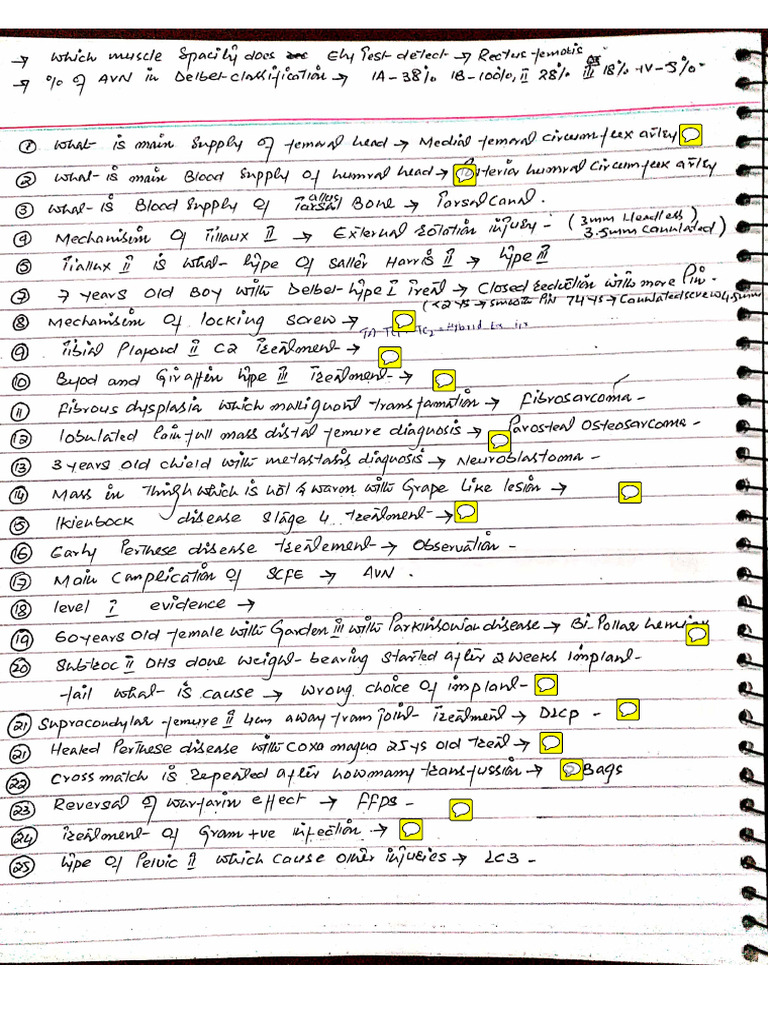 → which muscle Spacity does Ely Test detect → Rectus femoris
→ % of AVN in Delbet classification → IA-38% IB-100%, II 28% III 18% IV-5%
① what is main supply of femoral head → Medial femoral circumflex artery
② what is main Blood supply of humral head → humral circumflex artery
③ what is Blood supply of Tarsal Bone → Tarsal Canal.
④ Mechanism of Tillaux → External rotation injury - (3mm Headless) 3.5mm Cannulated)
⑤ Tiallux is what type of Salter Harris → type III
⑦ 7 years old Boy with Delbet type I Treat → Closed Reduction with more Pin
⑧ Mechanisim of locking screw →
⑨ Tibial Plafond C2 Treatment →
⑩ Byod and type III Treatment →
⑪ fibrous dysplasia which malliguant transfamation → fibrosarcoma -
⑫ lobulated Painfull mass distal femure diagnosis → Parosteal Osteosarcoma -
⑬ 3 years old chield with metastasis diagnosis → Neuroblastoma -
⑭ Mass in Thigh which is hot & warm with Grape Like lesion →
⑮ Ikienbock disease stage 4 treatment →
⑯ Early Perthese disease treatement → Observation -
⑰ Main Complication of SCFE → AVN .
⑱ level I evidence →
⑲ 60 years old female with Garden III with Parkinsonian disease → Bi-Pollar
⑳ Subtroc DHS done weight bearing started after 2 weeks implant
fail what is cause → wrong choice of implant -
㉑ Supracondylar femure 4cm away fram joint Treatment → DLCP -
㉑ Healed Perthese disease with coxa magna 25ys old treat →
㉒ Cross match is repeated after howmamy transfussion → Bags
㉓ Reversal of warfarin effect → FFPs -
㉔ Treatment of Gram +ve infection →
㉕ type of Pelvic which cause other injuries → LC3 -